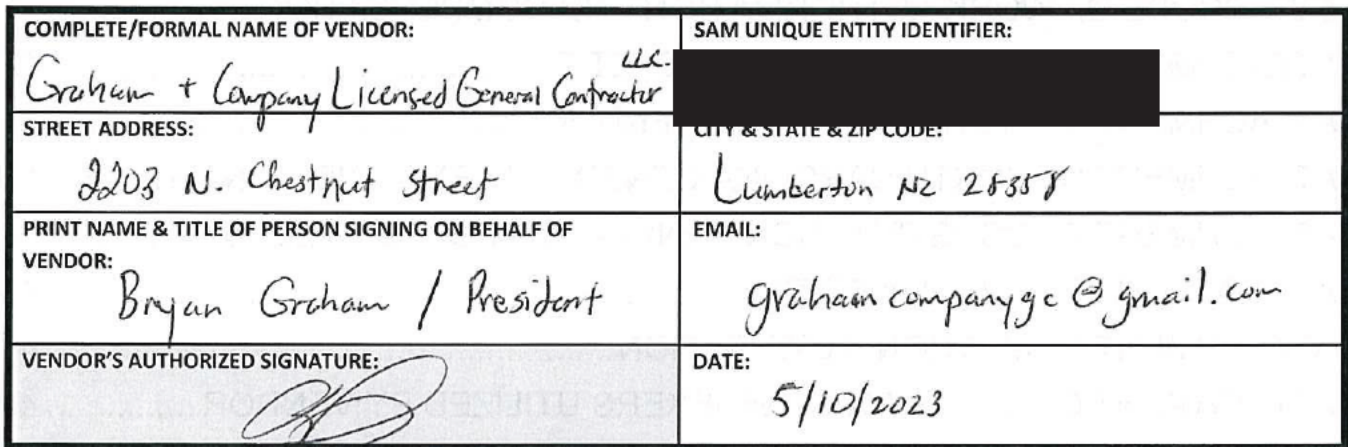 COMPLETE/FORMAL NAME OF VENDOR:
Graham + Company Licensed General Contractor LLC.
SAM UNIQUE ENTITY IDENTIFIER:
STREET ADDRESS:
2203 N. Chestnut Street
CITY & STATE & ZIP CODE:
Lumberton NC 28358
PRINT NAME & TITLE OF PERSON SIGNING ON BEHALF OF
VENDOR:
Bryan Graham / President
EMAIL:
grahamcompanygc@gmail.com
VENDOR'S AUTHORIZED SIGNATURE:
DATE:
5/10/2023